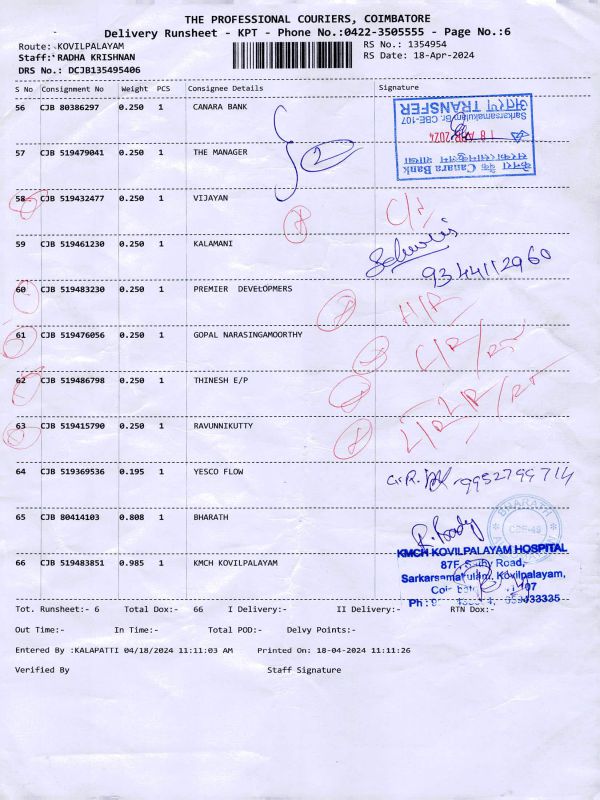 THE PROFESSIONAL COURIERS, COIMBATORE
Delivery Runsheet - KPT - Phone No.:0422-3505555 - Page No.:6
Route: KOVILPALAYAM RS No.: 1354954
Staff: RADHA KRISHNAN RS Date: 18-Apr-2024
DRS No.: DCJB135495406
S No Consignment No Weight PCS Consignee Details Signature
56 CJB 80386297 0.250 1 CANARA BANK
अंतरण TRANSFER
Sarkarsamakulam Br. CBE-107
18 APR 2024
केनरा बैंक Canara Bank
57 CJB 519479041 0.250 1 THE MANAGER 2
58 CJB 519432477 0.250 1 VIJAYAN
59 CJB 519461230 0.250 1 KALAMANI
9344112960
60 CJB 519483230 0.250 1 PREMIER DEVELOPMERS
61 CJB 519476056 0.250 1 GOPAL NARASINGAMOORTHY
62 CJB 519486798 0.250 1 THINESH E/P
63 CJB 519415790 0.250 1 RAVUNNIKUTTY
64 CJB 519369536 0.195 1 YESCO FLOW 9952799714
65 CJB 80414103 0.808 1 BHARATH
BHARATH
66 CJB 519483851 0.985 1 KMCH KOVILPALAYAM
KMCH KOVILPALAYAM HOSPITAL
87F, Road,
Sarkarsamakulam, Kovilpalayam,
Tot. Runsheet:- 6 Total Dox:- 66 I Delivery:- II Delivery:- RTN Dox:-
Out Time:- In Time:- Total POD:- Delvy Points:-
Entered By :KALAPATTI 04/18/2024 11:11:03 AM Printed On: 18-04-2024 11:11:26
Verified By Staff Signature